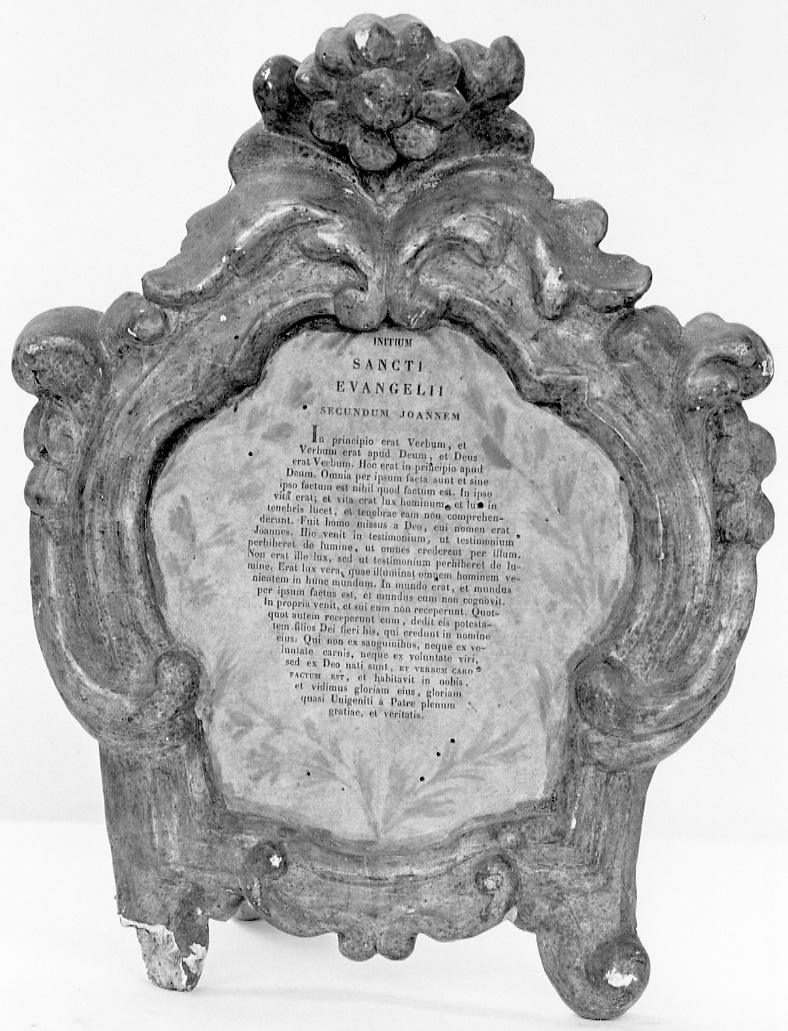 INITIUM
SANCTI
EVANGELII
SECUNDUM JOANNEM
In principio erat Verbum, et
Verbum erat apud Deum, et Deus
erat Verbum. Hoc erat in principio apud
Deum. Omnia per ipsum facta sunt et sine
ipso factum est nihil quod factum est. In ipso
vita erat; et vita erat lux hominum, et lux in
tenebris lucet, et tenebrae eam non comprehen-
derunt. Fuit homo missus a Deo, cui nomen erat
Joannes. Hic venit in testimonium, ut testimonium
perhiberet de lumine, ut omnes crederent per illum.
Non erat ille lux, sed ut testimonium perhiberet de lu-
mine. Erat lux vera, quae illuminat omnem hominem ve-
nientem in hunc mundum. In mundo erat, et mundus
per ipsum factus est, et mundus eum non cognovit.
In propria venit, et sui eum non receperunt. Quot-
quot autem receperunt eum, dedit eis potesta-
tem filios Dei fieri his, qui credunt in nomine
eius: Qui non ex sanguinibus, neque ex vo-
luntate carnis, neque ex voluntate viri,
sed ex Deo nati sunt, ET VERBUM CARO
FACTUM EST, et habitavit in nobis,
et vidimus gloriam eius, gloriam
quasi Unigeniti à Patre plenum
gratiae, et veritatis.